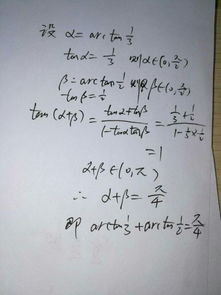 设 α = arctan 1/3
tanα = 1/3 则 α∈(0, π/2)
β = arctan 1/2 则 β∈(0, π/2)
tanβ = 1/2
tan(α+β) = (tanα+tanβ)/(1-tanαtanβ) = (1/3+1/2)/(1-1/3×1/2)
= 1
α+β∈(0, π)
∴ α+β = π/4
即 arctan 1/3 + arctan 1/2 = π/4